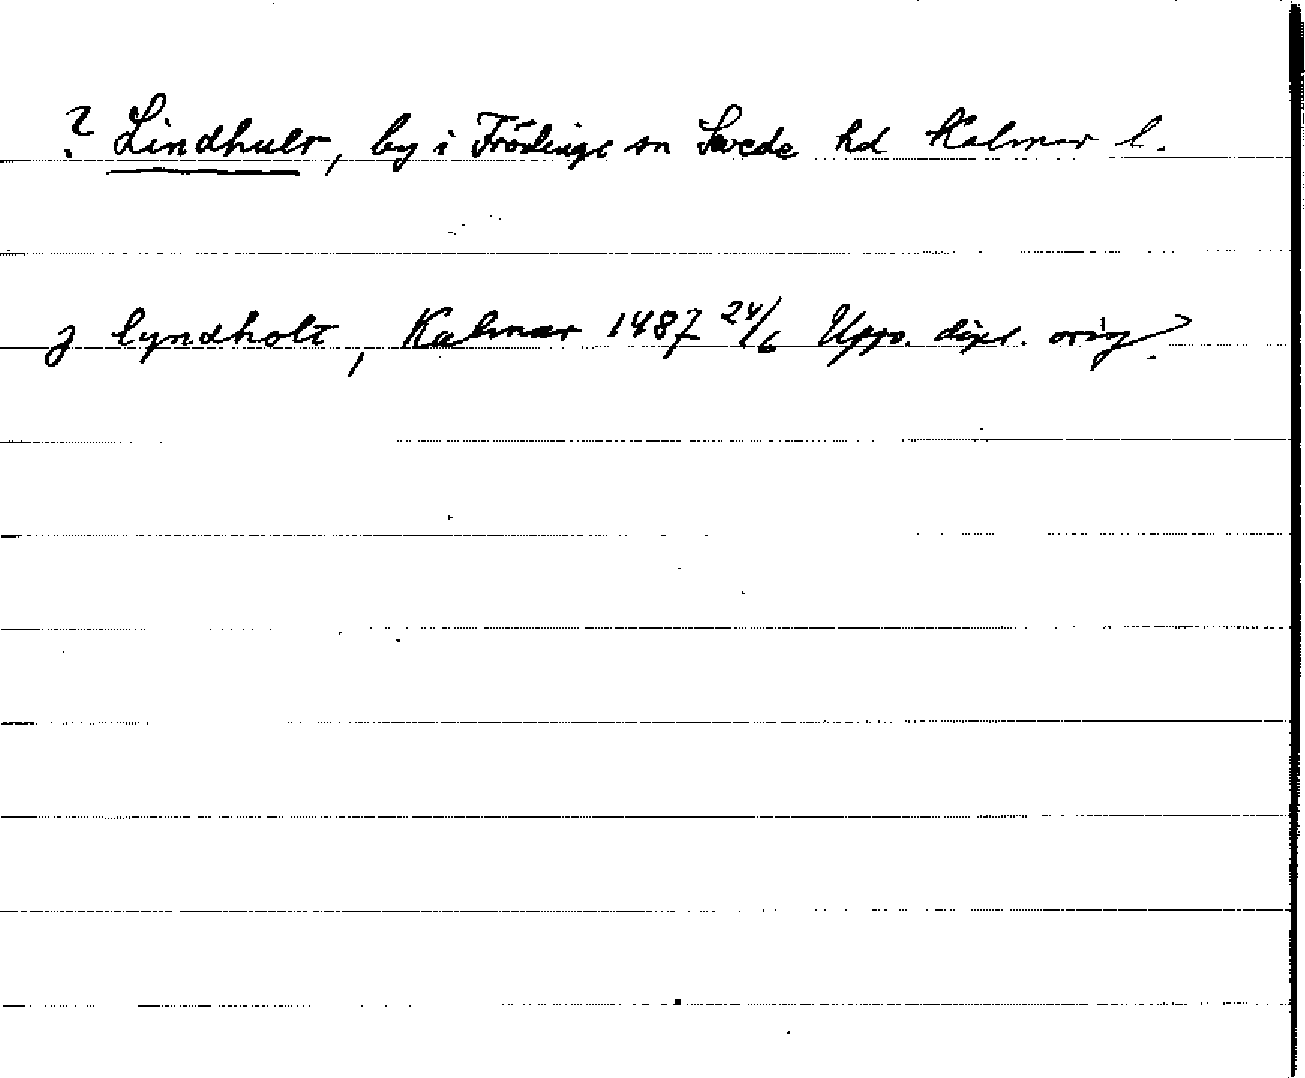 ? Lindhult, by i Frödinge sn Sevede hd Kalmar l.
j lyndholt, Kalmar 1487 24/6 Upps. dipl. orig.